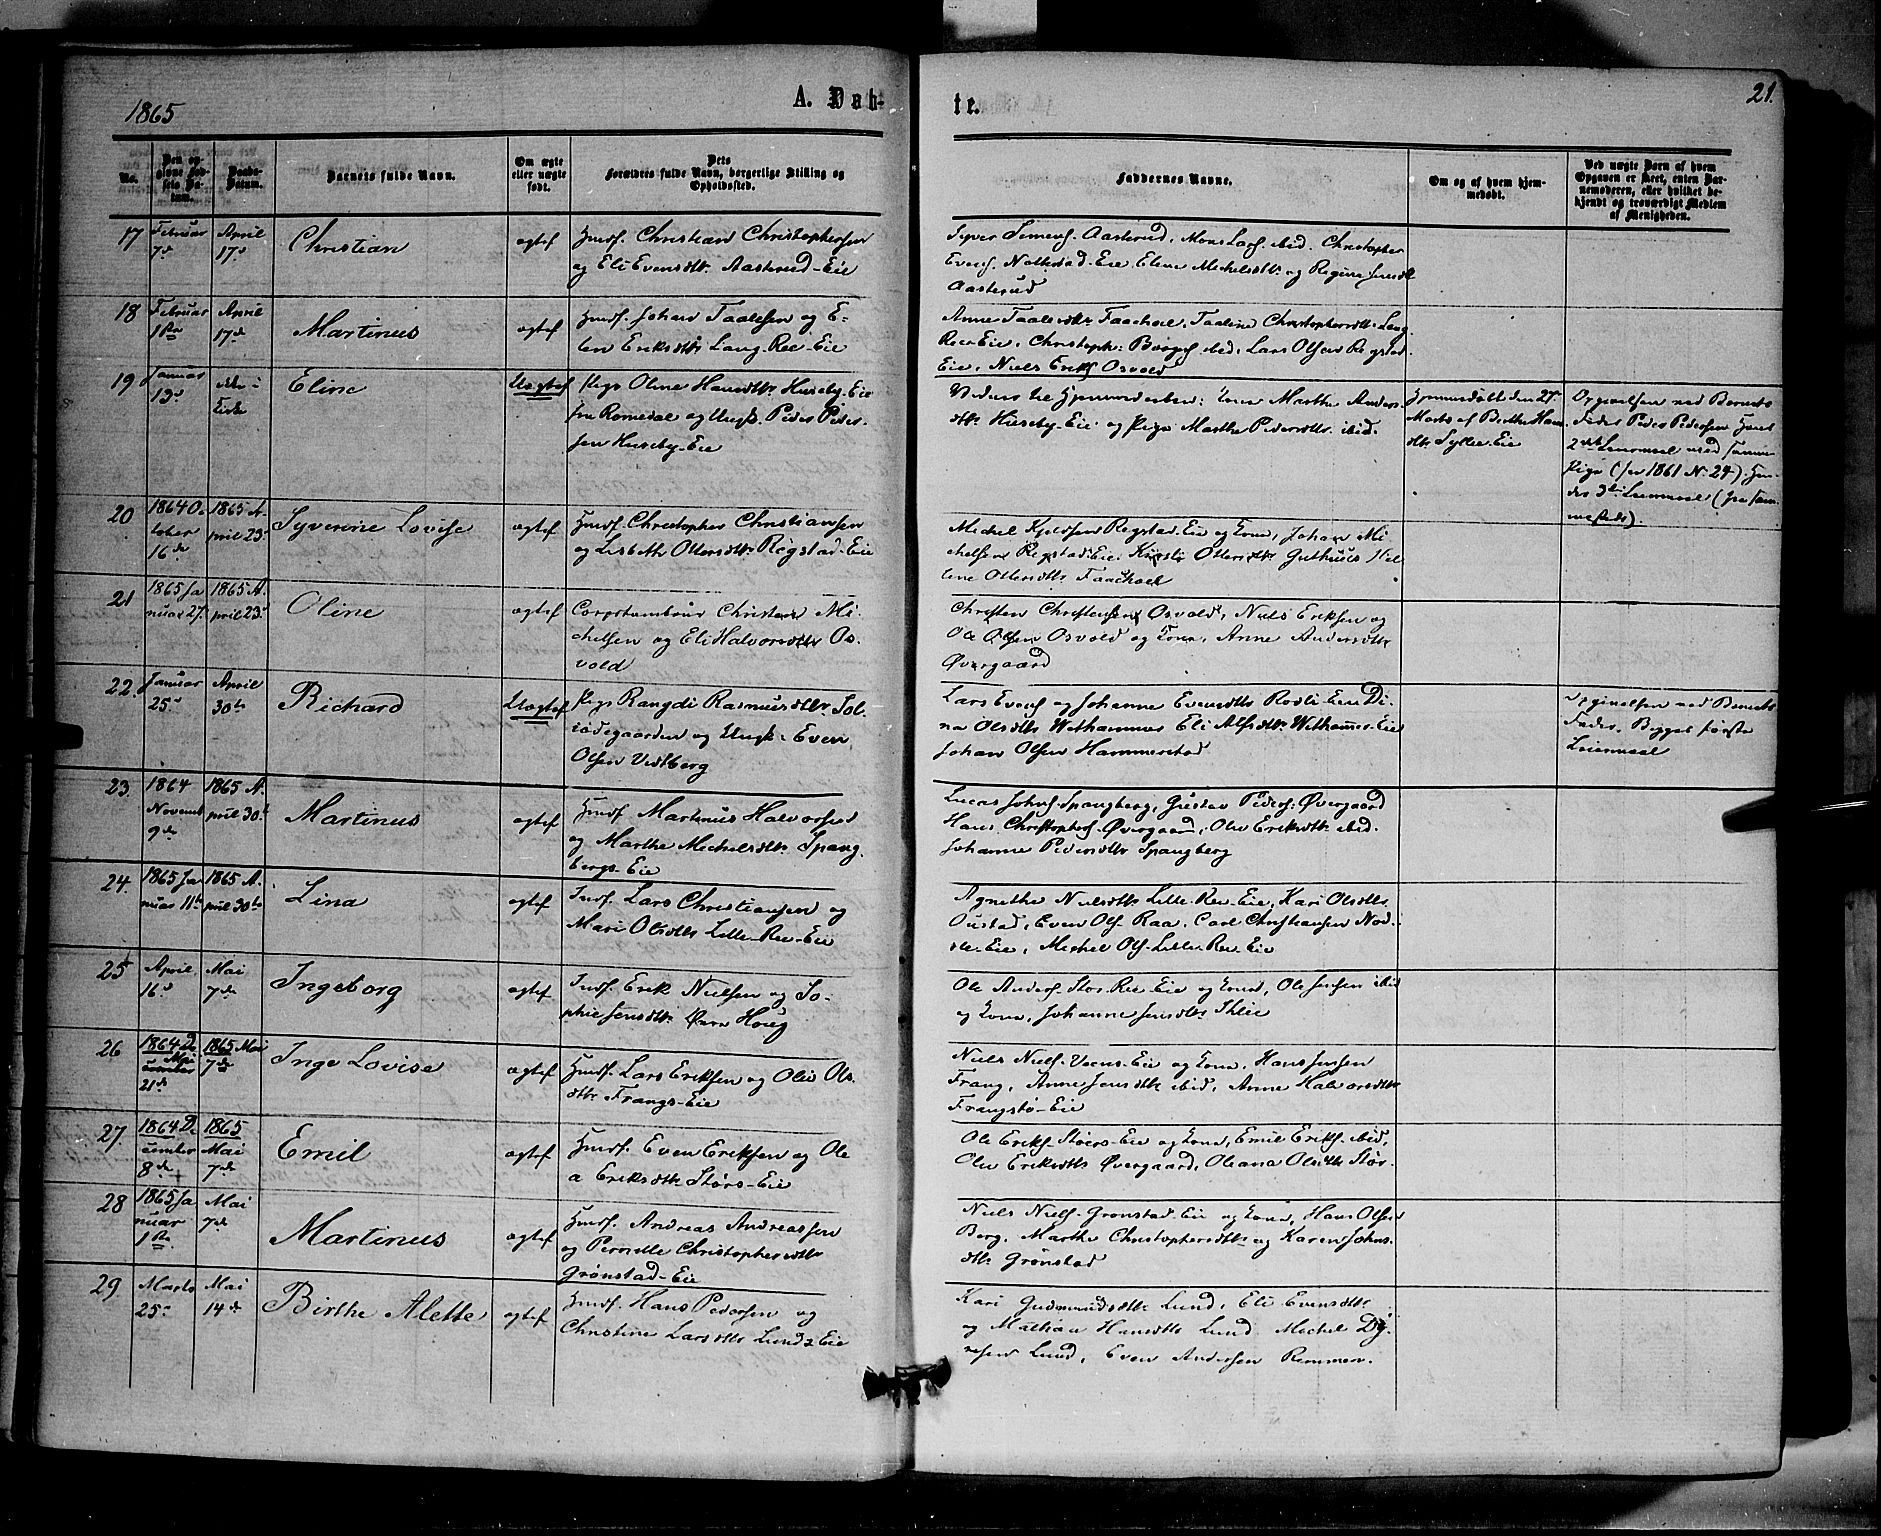 1865
A. Døb-
te.
21.
No.
Den op-
givne Fød-
sels Da-
tum.
Daabs-
Datum.
Barnets fulde Navn.
Om ægte
eller uægte
født.
Dets
Forældres fulde Navn, borgerlige Stilling og
Opholdssted.
Faddernes Navne.
Om og af hvem hjem-
medøbt.
Ved uægte Børn af hvem
Opgaven er skeet, enten Bar-
nemoderen, eller hvilket be-
kjendt og troværdigt Medlem
af Menigheden.
17
Februar
7de
April
17de
Christian
ægtef
Huusf. Christian Christophersen
og Eli Evensdtr. Aasterud-Eie
Syver Simens. Aasterud, Mons Lars. ibid. Christopher
Evens. Nottestad-Eie, Elene Mechelsdtr. og Regine Jensdtr
Aasterud
18
Februar
1ste
April
17de
Martinus
ægtef
Huusf. Johan Taalesen og E-
len Eriksdtr. Lang-Ree-Eie
Anne Taalesdtr. Faachoel, Taaline Christophersdtr. Lang
Ree-Eie, Christoph. Børges. ibid, Lars Olsen Regstad
Eie, Niels Eriks. Osvold
19
Januar
13de
Eline
Uægtef
Pige Oline Hansdtr. Huseby-Eie
fra Romedal og Ungk. Peder Peder-
sen Huseby-Eie
Vidner til Hjemmedaaben: Kone Marthe Anders
dtr. Huseby-Eie og Pige Marthe Pedersdtr. ibid.
Hjemmedøbt den 27
Marts af Berthe Han
dtr. Syllie-Eie
Opgivelsen ved Barnets
Fader Peder Pedersen Hans
2det Leiermaal med samme
Pige (see 1861 No. 24) Hen-
des 3die Leiermaal (fra sam-
mesteds).
20
1864 Oc
tober
16de
1865 A.
pril 23de
Syverine Lovise
ægtef
Huusf. Christopher Christiansen
og Lisbeth Ottersdtr. Regstad-Eie
Mechel Kjeldsen Regstad-Eie og Kone, Johan Mi-
chelsen Regstad-Eie, Kirsti Ottersdtr. Guthuus Hel
lene Ottersdtr. Faachoel
21
1865 Ja
nuar 27.
1865 A.
pril 23de
Oline
ægtef
Corpstambour Christian Mi-
chelsen og Eli Halvorsdtr. Os-
vold
Christen Christensen Osvold, Niels Eriksen og
Ole Olsen Osvold og Kone, Anne Andersdtr.
Øvergaard
22.
Januar
25de
April
30te
Richard
Uægtef
Pige Rangdi Rasmusdtr. Sol-
stadegaarden og Ungk. Even
Olsen Vestberg
Lars Evens. og Johanne Evensdtr. Rosli-Eie Di
na Olsdtr. Wethammer Eli Alfsdtr. Wethammer-Eie
Johan Olsen Hammerstad
Opgivelsen ved Barnets
Fader. Begges første
Leiermaal
23
1864
Novemb
9de
1865 A.
pril 30te
Martinus
ægtef
Huusf. Martinus Halvorsen
og Marthe Mechelsdtr. Spang
bergs-Eie
Lucas Johns. Spangberg, Gustav Peders. Øvergaard
Hans Christophers. Øvergaard, Olea Eriksdtr. ibid.
Johanne Pedersdtr. Spangberg
24.
1865 Ja
nuar 11te
1865 A.
pril 30te
Lina
ægtef
Inds. Lars Christiansen og
Mari Olsdtr. Lille-Ree-Eie
Agnethe Nielsdtr. Lille-Ree-Eie, Kari Olsdtr.
Oustad, Even Ols. Raa, Carl Christiansen Nod-
sle-Eie, Mechel Ols. Lille-Ree-Eie
25
April
16de
Mai
7de
Ingeborg
ægtef
Inds. Erik Nielsen og So-
phie Jensdtr. Houg
Ole Anders. Stor-Ree-Eie og Kone, Ole Jensen ibid
og Kone, Johanne Jensdtr. Ihlie
26
1864 De
cember
21de
1865 Mai
7de
Inge Lovise
ægtef
Huusf. Lars Eriksen og Olea Ols
dtr. Frangs-Eie
Niels Niels. Veens-Eie og Kone, Hans Jensen
Frang, Anne Jensdtr. ibid, Anne Halvorsdtr.
Frangstø-Eie
27
1864 De
cember
8de
1865
Mai
7de
Emil
ægtef
Huusf. Even Eriksen og Ole
a Eriksdtr. Størs-Eie
Ole Eriks. Størs-Eie og Kone, Emil Eriks. ibid,
Olea Eriksdtr. Øvergaard, Oleana Olsdtr. Stør.
28
1865 Ja
nuar
1ste
Mai
7de
Martinus
ægtef
Huusf. Andreas Andreassen
og Pernelle Christophersdtr
Grønstad-Eie
Niels Niels. Grønstad-Eie og Kone, Hans Olsen
Berg, Marthe Christophersdtr. og Karen Johns-
dtr. Grønstad
29
Marts
25de
Mai
14de
Birthe Alette
ægtef
Huusf. Hans Pedersen og
Christine Larsdtr. Lunds-Eie
Kari Gudmundsdtr. Lund, Eli Evensdtr.
og Mathea Hansdtr. Lund Mechel Dy-
resen Lund, Even Andersen Remmen.